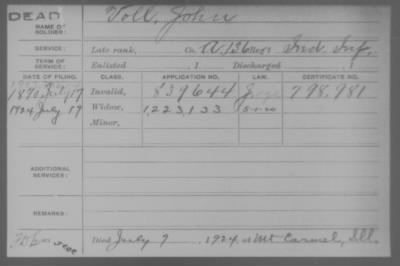 DEAD
NAME OF SOLDIER: Voll, John
SERVICE: Late rank, Co. A, 136 Regt Ind. Inf.
TERM OF SERVICE: Enlisted , 1 Discharged , 1
DATE OF FILING. CLASS. APPLICATION NO. LAW. CERTIFICATE NO.
1890 July 17 Invalid, 839644 798,981
1924 July 17 Widow, 1,223,133
Minor,
ADDITIONAL SERVICES:
REMARKS:
Died July 9 1924 at Mt Carmel, Ill.